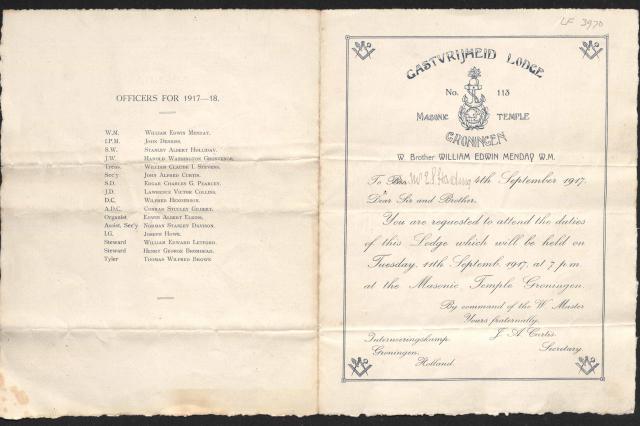 OFFICERS FOR 1917—18.
W.M. WILLIAM EDWIN MENDAY.
I.P.M. JOHN DENNISS.
S.W. STANLEY ALBERT HOLLIDAY.
J.W. HAROLD WASHINGTON GROSVENOR.
Treas. WILLIAM CLAUDE I. STEVENS.
Sec'y JOHN ALFRED CURTIS.
S.D. EDGAR CHARLES G. PEARLEY.
J.D. LAWRENCE VICTOR COLLINS.
D.C. WILFRED HENDERSON.
A.D.C. CONRAN STUCLEY GILBERT.
Organist EDWIN ALBERT ELKINS.
Assist. Sec'y NORMAN STANLEY DAVISON.
I.G. JOSEPH HOWE.
Steward WILLIAM EDWARD LETFORD.
Steward HENRY GEORGE BROMHEAD.
Tyler THOMAS WILFRED BROWN
LF 3970
GASTVRIJHEID LODGE
No. 113
MASONIC TEMPLE
GRONINGEN
W. Brother WILLIAM EDWIN MENDAY W.M.
To Bro. 4th September 1917.
Dear Sir and Brother,
You are requested to attend the duties
of this Lodge which will be held on
Tuesday, 11th Septemb. 1917, at 7 p.m.
at the Masonic Temple Groningen.
By command of the W. Master
Yours fraternally,
J. A. Curtis
Secretary.
Interneeringskamp.
Groningen.
Holland.